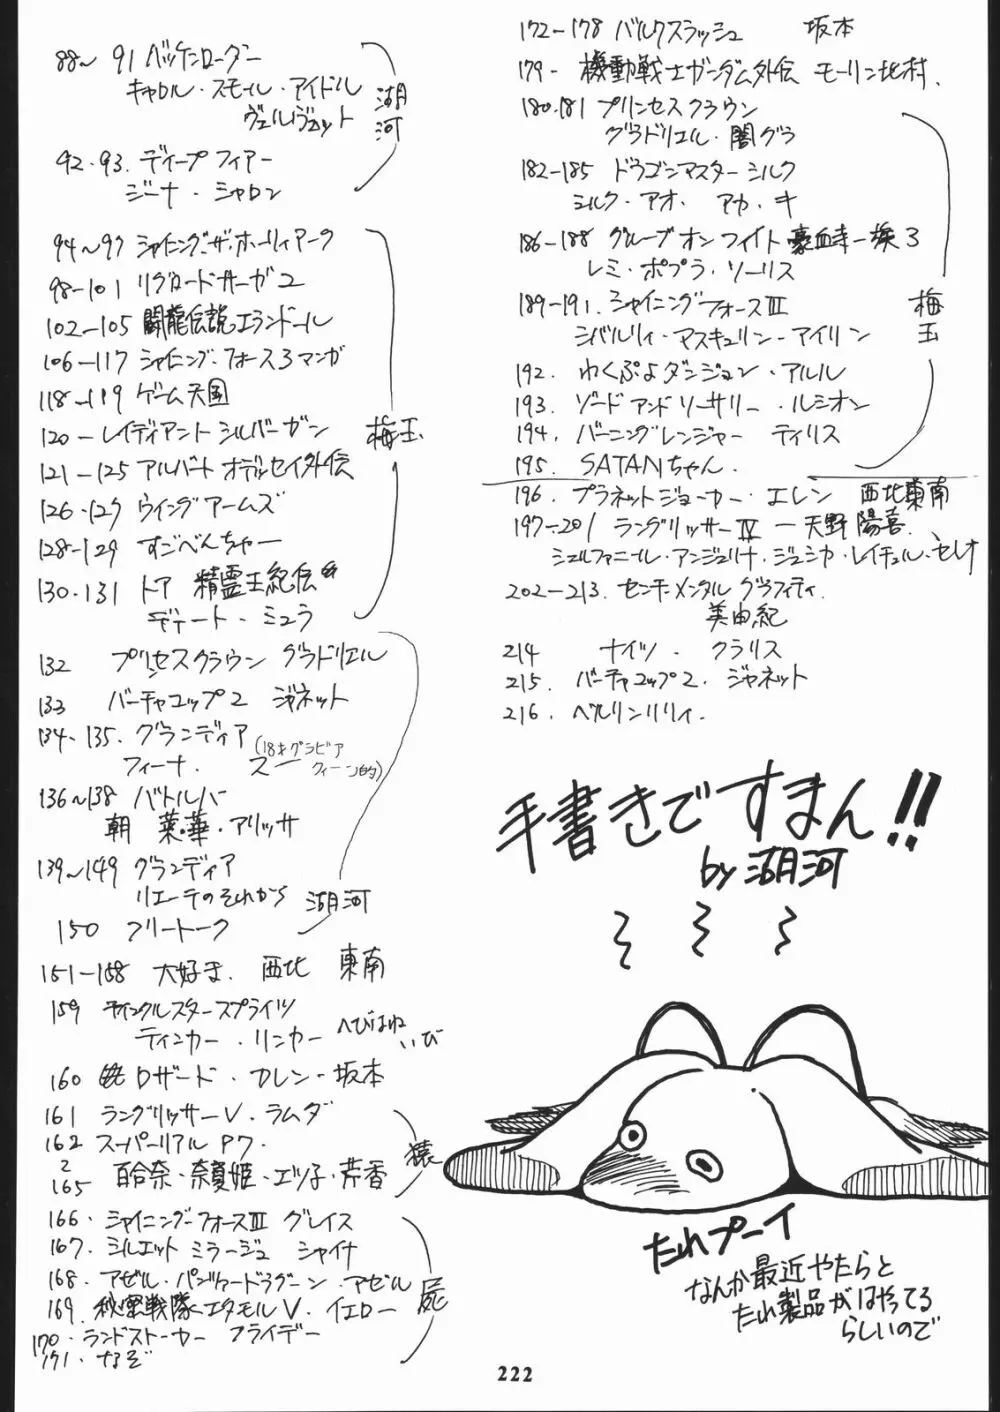 88～91 バッケンローダー
キャロル・スモール・アイドル
ヴェルヴェット
湖河
92・93. ディープフィアー
ジーナ・シャロン
94～97 シャイニング・ザ・ホーリィアーク
98-101 リグロードサーガ2
102-105 闘龍伝説エランドール
106-117 シャイニング・フォース3マンガ
118-119 ゲーム天国
120-レイディアントシルバーガン
梅玉
121-125 アルバートオデッセイ外伝
126・127 ウイングアームズ
128-129 すごべんちゃー
130・131 トア 精霊王紀伝
ディート・ミュラ
132 プリンセスクラウン グラドリエル
133 バーチャコップ2 ジャネット
134・135. グランディア
フィーナ. スー (18才グラビアクィーン的)
136～138 バトルバ
朝 菜・華・アリッサ
139～149 グランディア
リエーテのそれから
湖河
150 フリートーク
151-158 大好き. 西北 東南
159 ティンクルスタースプライツ
ティンカー・リンカー へびはねいび
160 銃ロザード・カレン-坂本
161 ラングリッサーV・ラムダ
162 スーパーリアルP7.
2
165 百合奈・奈賀姫・エツ子・芹香
猿
166・シャイニング・フォースIII グレイス
167・シルエットミラージュ シャイナ
168・アゼル・パンツァードラグーン・アゼル
屍
169. 秘密戦隊メタモルV・イエロー
170・ランドストーカー フライデー
171・なぞ
172-178 バルクスラッシュ 坂本
179- 機動戦士ガンダム外伝 モーリン北村.
180.181 プリンセスクラウン
グラドリエル・闇グラ
182-185 ドラゴンマスターシルク
シルク・アオ. アカ・キ
186-188 グルーブオンファイト豪血寺一族3
レミ・ポプラ・ソーリス
189-191. シャイニングフォースIII
シバルリィ・マスキュリン-アイリン
梅玉
192. わくぷよダンジョン・アルル
193. ソードアンドソーサリー・ルシオン
194. バーニングレンジャー ティリス
195. SATANちゃん.
196. プラネットジョーカー・エレン 西北東南
197-201 ラングリッサーIV-天野陽喜、
シェルファニール・アンジェリナ・ジェシカ・レイチェル・セレナ
202-213. センチメンタルグラフィティ.
美由紀
214 ナイツ・クラリス
215. バーチャコップ2. ジャネット
216. ベルリンリリィ.
手書きですまん!!
by 湖河
たれプーイ
なんか最近やたらと
たれ製品がはやってる
らしいので
222